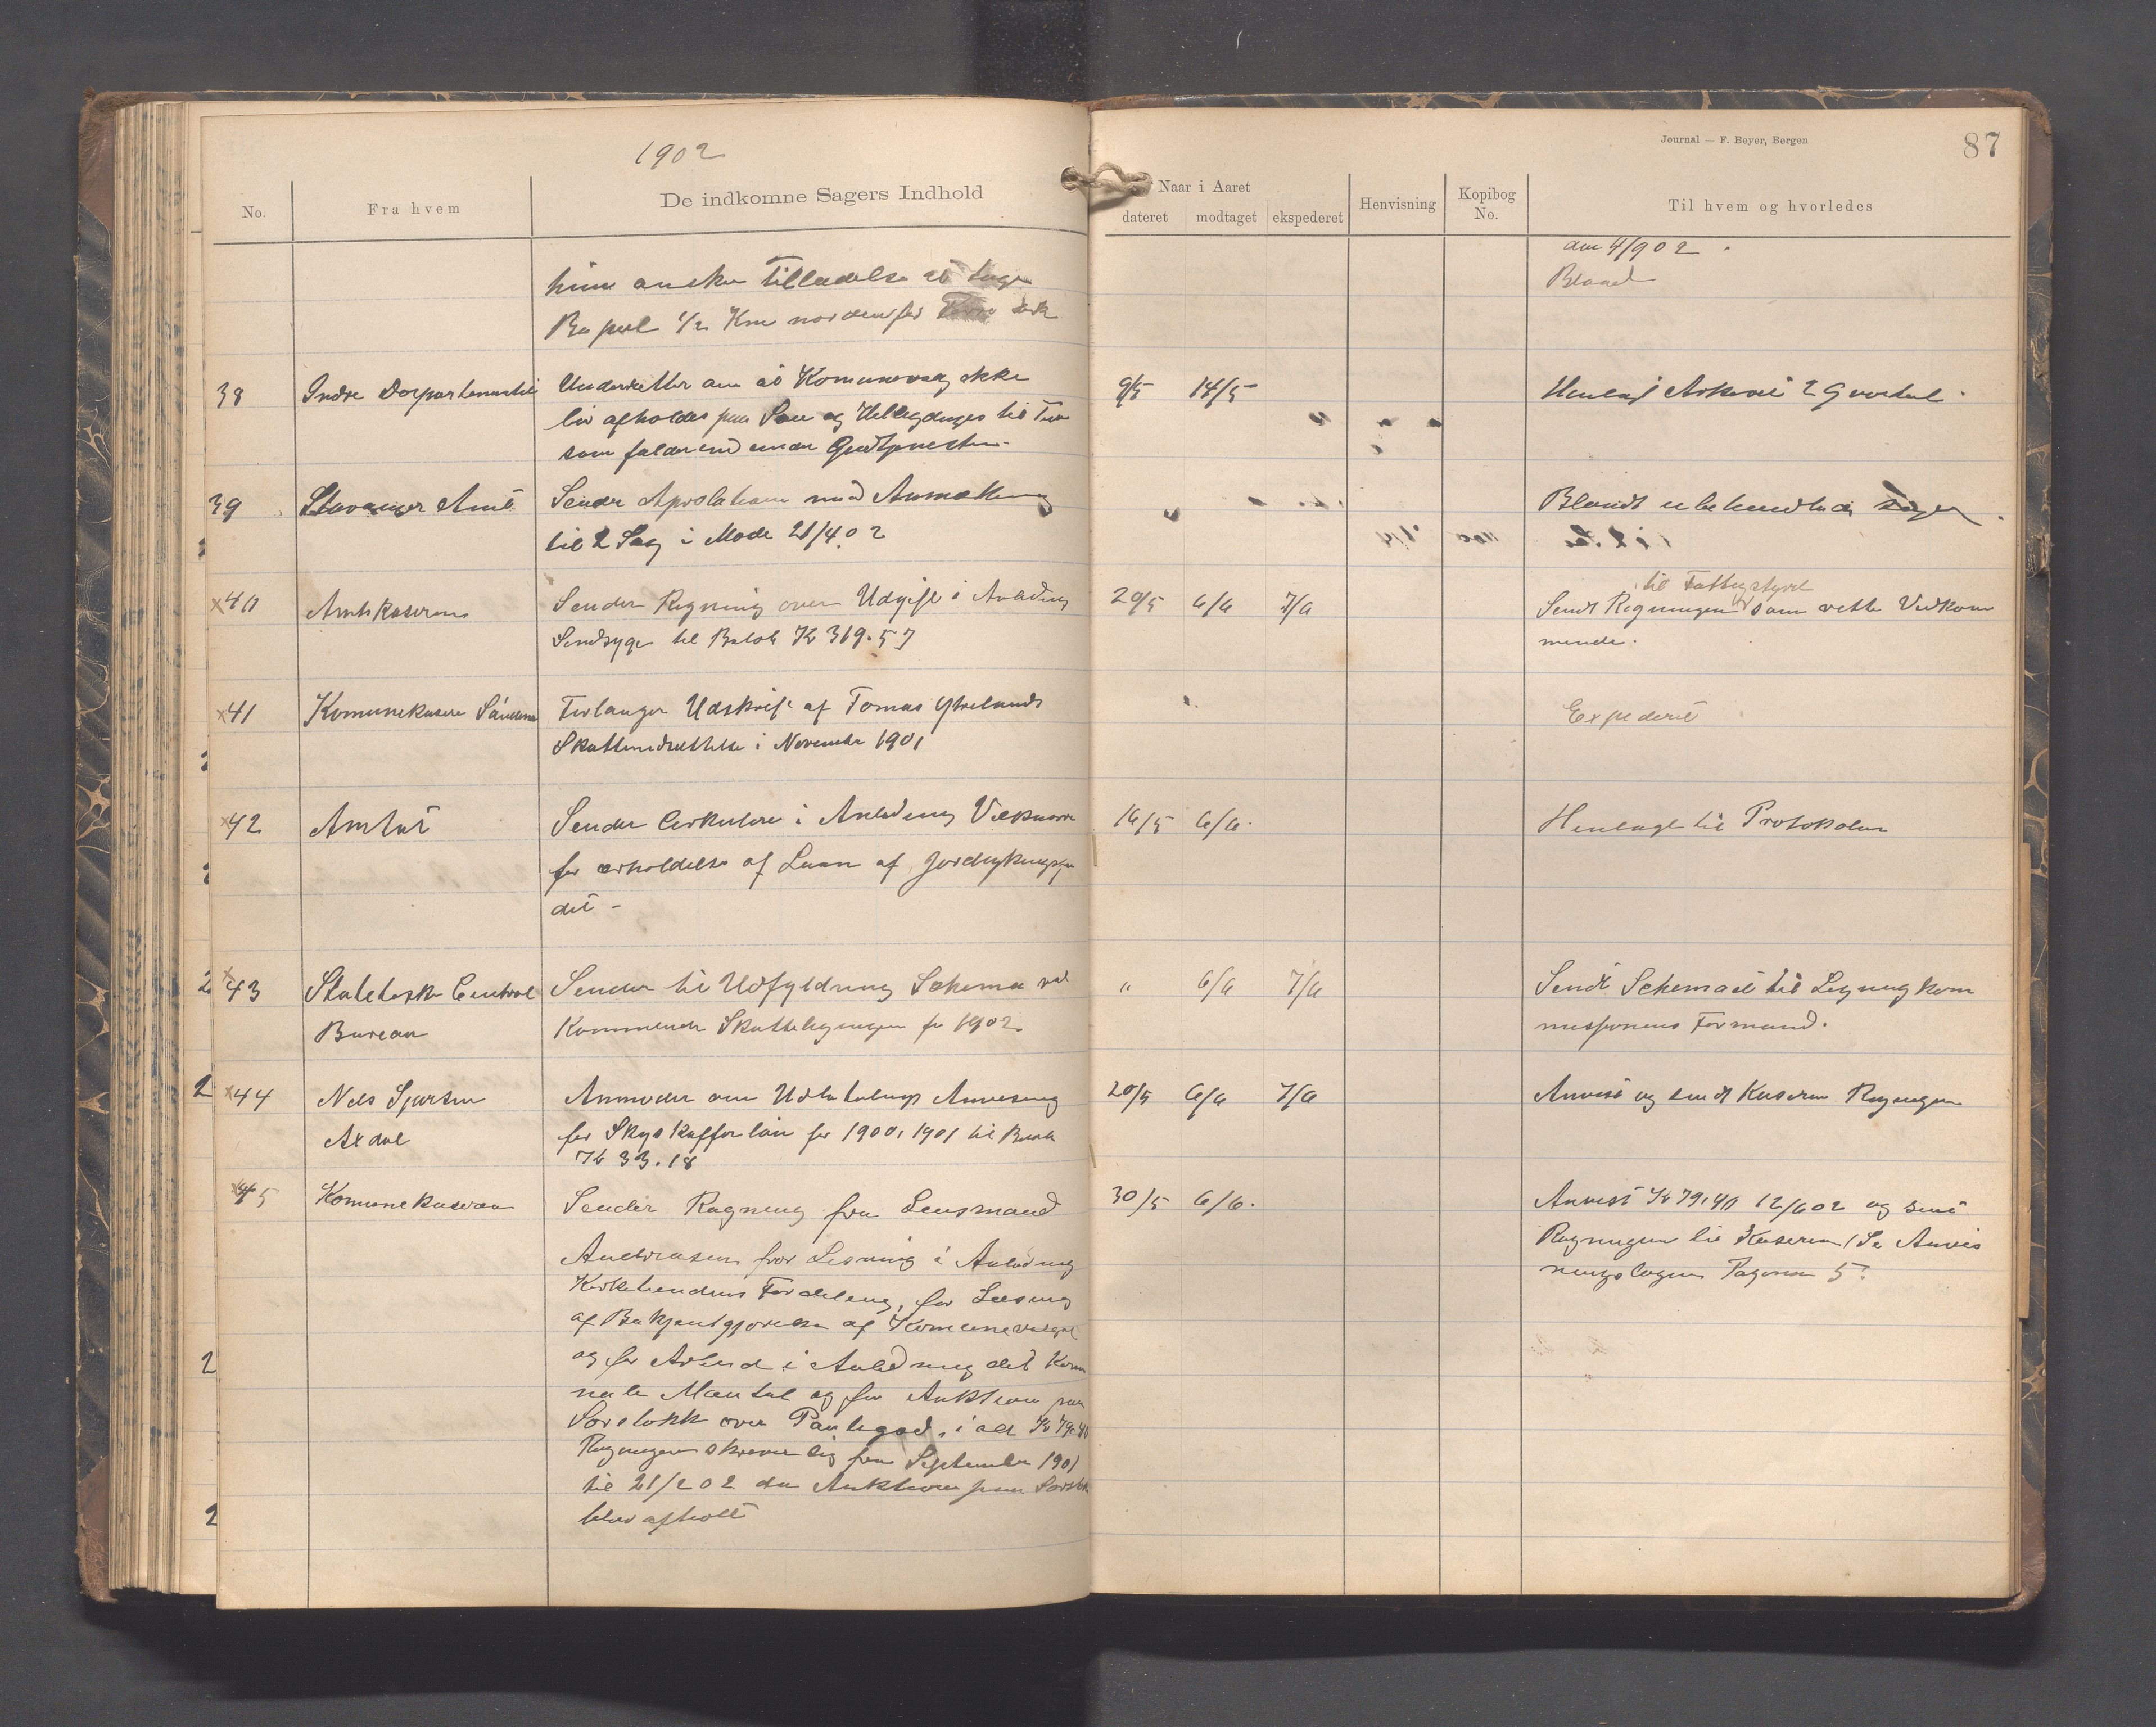 1902
Journal — F. Beyer, Bergen
87
No.
Fra hvem
De indkomne Sagers Indhold
Naar i Aaret
dateret
modtaget
ekspederet
Henvisning
Kopibog
No.
Til hvem og hvorledes
Tilladelse at
1/2 Km nordenfor
den 4/902
38
Indre Departementet
Underretter om at Komunevalg ikke
bør afholdes paa Søn og Helligdage
som falder ind under Gudtjenesten
9/5
14/5
Henlagt Arkivet 2 Qvartal
39
Stavanger Amt
Sender Aprobation med Anmærkning
til 2 Sag i Møde 21/4 02
Blandt ubehandlede Sager
40
Amtskaseren
Sender Regning over Udgift i Anledning
Sindsyge til Beløb Kr 319.57
20/5
6/6
7/6
til Fattigstyret
Sendt Regningen som rette Vedkom
mende.
41
Komunekaserer
Forlanger Udskrift af Tomas Ytrelands
Skattenedsættelse i November 1901
Expederet
42
Amtet
Sender Cirkulære i Anledning Vilkaarene
for erholdelse af Laan af Jorddyrkningsfon
det -
16/5
6/6.
Henlagt til Protokolen
43
Statestiske Centrale
Bureau
Sender til Udfyldning Schema ved
Kommende Skatteligningen for 1902
"
6/6
7/6
Sendt Schemaet til Ligningskom
missionens Formand.
44
Nels
Axdal
Anmoder om Udbetalings Anvisning
for Skyds for 1900, 1901 til Beløb
Kr 33.18
20/5
6/6
7/6
Anvist og sendt Kaseren Regningen
45
Komunekaseren
Sender Regning fra Lensmand
Andreasen for Læsning i Anledning
Fordeling, for Læsning
af Bekjentgjørelse af Komunevalget
og for Arbeid i Anledning det Komu
nale Mantal og for Auktion paa
over Pantegod, i alt Kr 79.40
Regningen skriver sig fra September 1901
til 21/2 02 da Auktion paa
blev afholt
30/5
6/6.
Anvist Kr 79,40 12/6 02 og sent
Regningen til Kaseren (Se Anvis
ningsbogen Pagina 5.